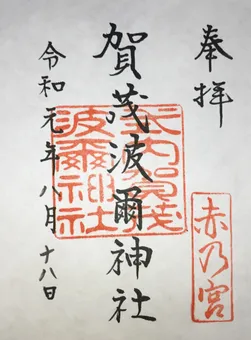 奉拝
賀茂波爾神社
令和元年八月十八日
式内賀茂
波爾神社
赤乃宮